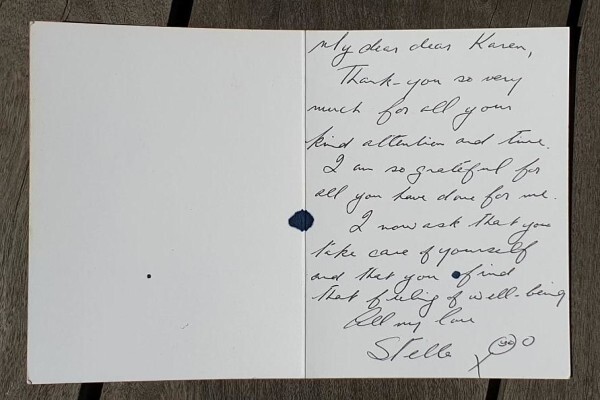 My dear dear Karen,
Thank-you so very
much for all your
kind attention and time.
I am so grateful for
all you have done for me.
I now ask that you
take care of yourself
and that you find
that feeling of well-being
All my love
Stella x o